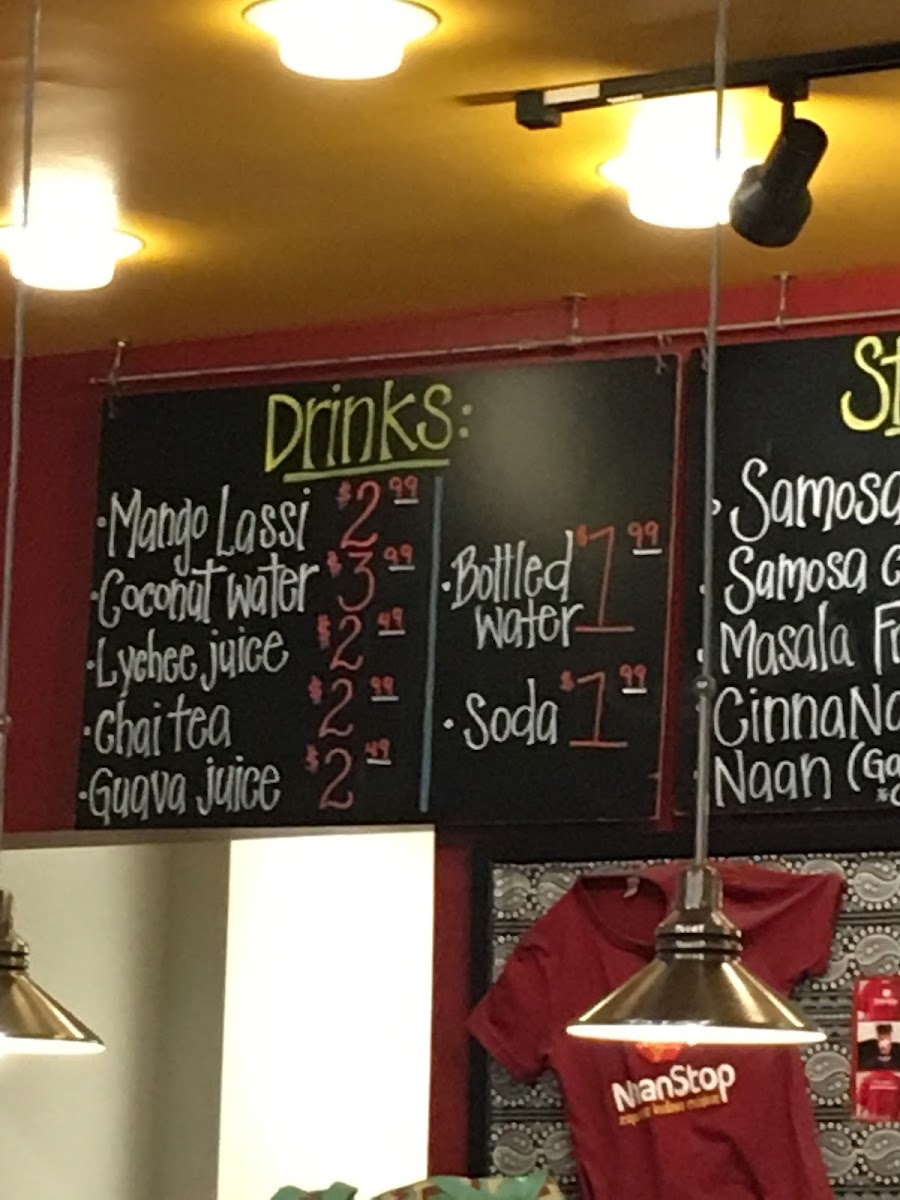 Drinks:
·Mango Lassi $2.99
·Coconut water $3.99
·Lychee juice $2.49
·Chai tea $2.99
·Guava juice $2.49
·Bottled water $1.99
·Soda $1.99
St
·Samosa
Samosa c
Masala Fr
CinnaNa
Naan (Ga
NaanStop